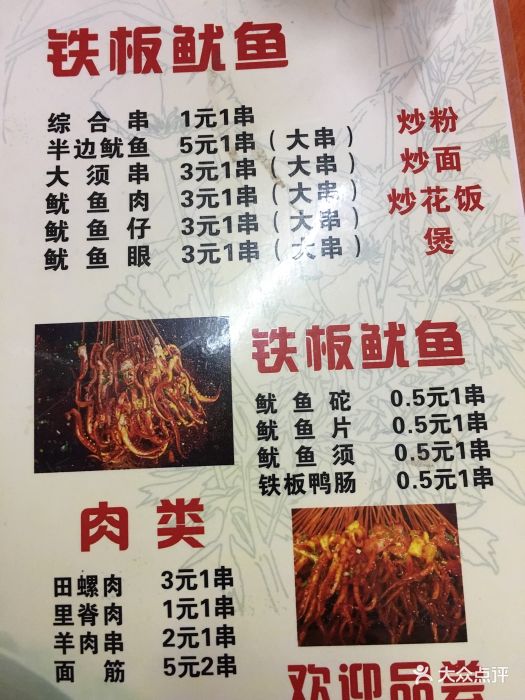 铁板鱿鱼
综合串 1元1串
半边鱿鱼 5元1串（大串）
大须串 3元1串（大串）
鱿鱼肉 3元1串（大串）
鱿鱼仔 3元1串（大串）
鱿鱼眼 3元1串（大串）
炒粉
炒面
炒花饭
煲
铁板鱿鱼
鱿鱼砣 0.5元1串
鱿鱼片 0.5元1串
鱿鱼须 0.5元1串
铁板鸭肠 0.5元1串
肉类
田螺肉 3元1串
里脊肉 1元1串
羊肉串 2元1串
面筋 5元2串
欢迎品尝
大众点评